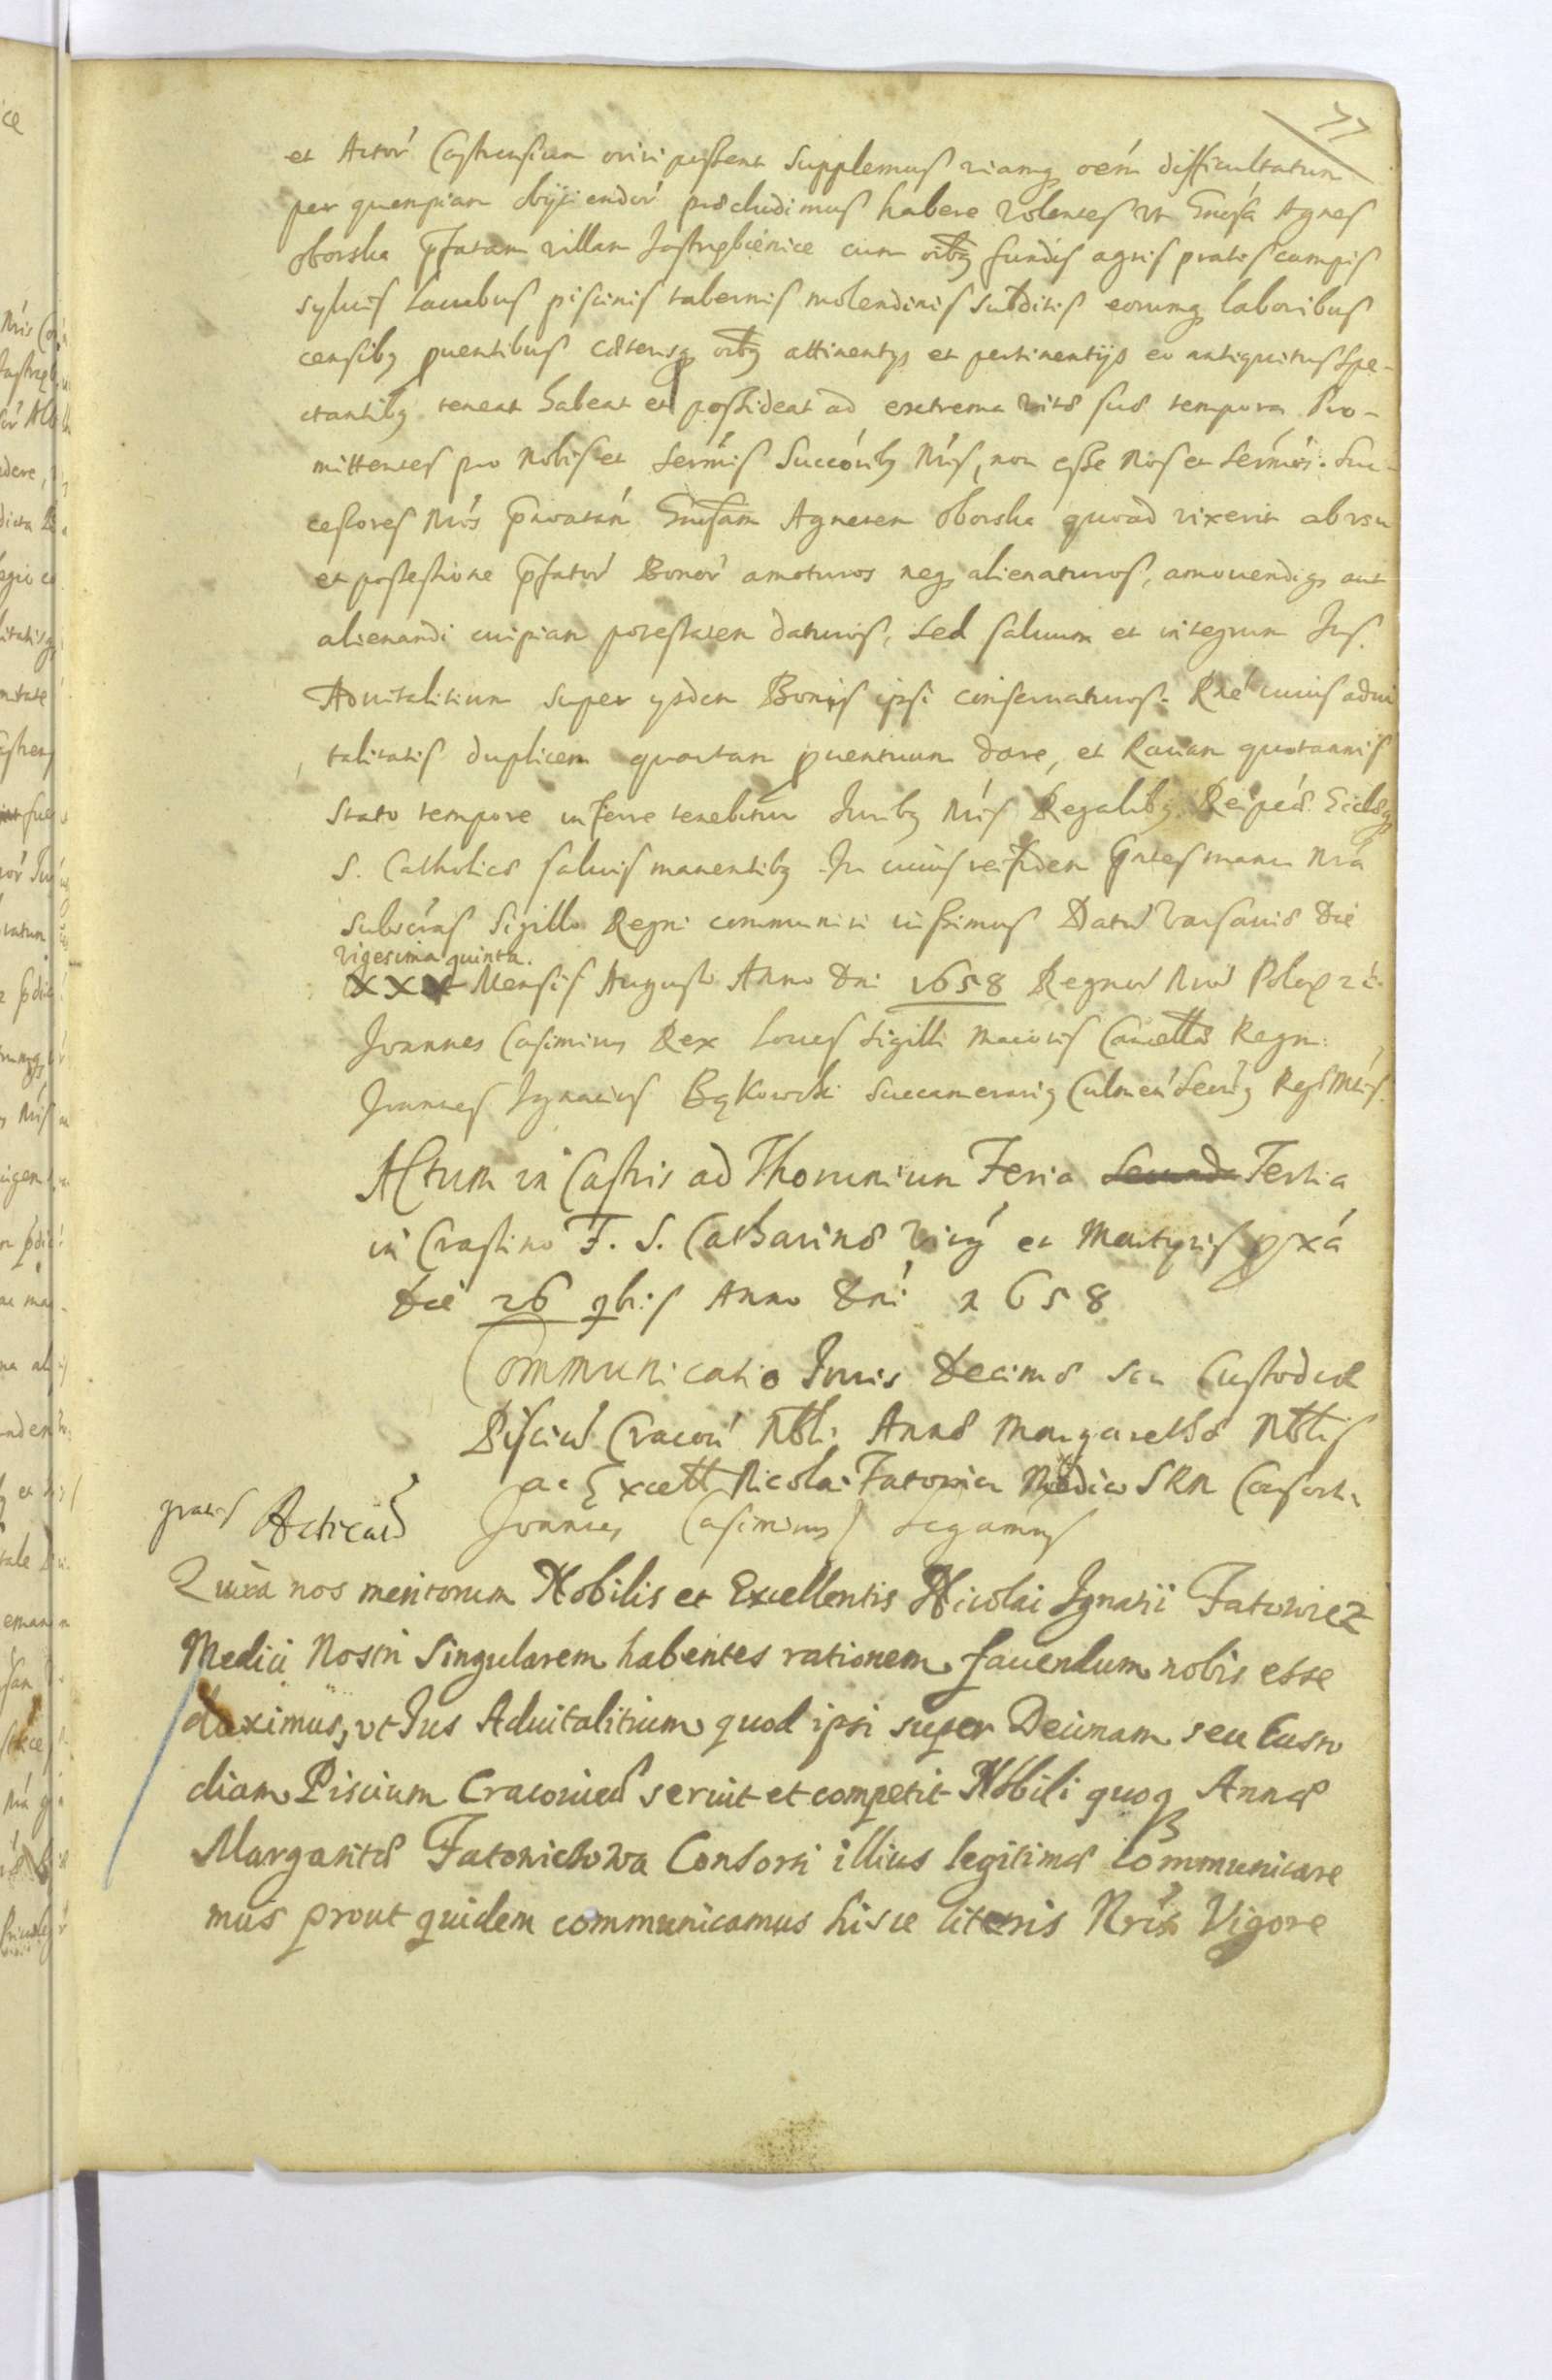 77
et Actor' Castrensium oriri possent supplemus viamq, oem' difficultatum
per quempiam obijciendor' praecludimus habere volentes vt Gnosa Agnes
Oborska pfatam villam Jastrzębienice cum oibq fundis agris pratis campis
syluis lacubus piscinis tabernis molendinis subditis eorumq laboribus
censibq puentibus caeterisq oibq attinentys et pertinentijs eo antiquitus spe-
ctantibq teneat habeat et possideat ad extrema vitae suae tempora Pro-
mittentes pro Nobis et Sermis Succoribq Nris, non esse Nos et Sermos Suc-
cessores Nros pnoatam Gnosam Agnetem Oborska quoad vixerit ab vsu
et possessione pfator' Bonor' amoturos neq, alienaturos, amouendiq, aut
alienandi cuipiam potestatem daturos, sed saluum et integrum Jus.
Aduitalitium super ysdem Bonis ipsi conseruaturos. Rne' cuius adui
talitatis duplicem quartam puentuum dare, et Rauam quotannis
stato tempore inferre tenebitur Juribq Nris Regalibq Reipcae Ecclaeq
S. Catholicae saluis manentibq In cuius rei fidem pntes manu Nra
subscras Sigillo Regni communiri iussimus Datum Varsauiae Die
vigesima quinta.
XXV Mensis Augusti Anno Dni 1658 Regnor' Nror' Polae 2c.
Joannes Casimirus Rex Locus Sigilli Maioris Cancellae Regni
Joannes Ignatius Bąkowski Succamerariq Culmen' Secriq Regae Mtis.
Actum in Castris ad Thorunium Feria Secunda Tertia
in Crastino F. S. Catharinae Virg' et Martyris pxa
die 26 9bris Anno Dni 1658
Communicatio Juris Decimae seu Custodiae
Piscium Cracou' Nbli Annae Margarethae Nblis
ac Excell Nicolai Fatowicz Medico SRM Consorti
gratis Acticat' Joannes Casimirus Legamus
Quia nos meritorum Nobilis et Excellentis Nicolai Ignatii Fatowicz
Medici Nostri Singularem habentes rationem fauendum nobis esse
duximus, vt Jus Aduitalitium quod ipsi super Decimam seu Custo
diam Piscium Cracouien' seruit et competit Nobili quoq Annae
Margaritae Fatowiczowa Consorti illius legitimae Communicare
mus prout quidem communicamus hisce literis Nris Vigore